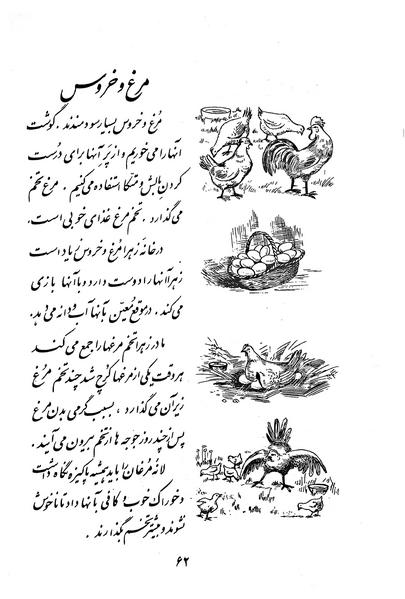 مرغ و خروس
مُرغ و خروس بسیار سودمندند . گوشت
آنها را می خوریم و از پَر آنها برای دُرست
کردن بالش و متکا استفاده می کنیم . مرغ تخم
می گذارد . تخم مرغ غذای خوبی است .
در خانهٔ زهرا مُرغ و خروس زیاد است
زهرا آنها را دوست دارد و با آنها بازی
می کند . در موقع مُعیّن بآنها آب و دانه می دهد .
مادر زهرا تخم مرغها را جمع می کند
هر وقت یکی از مرغها کُرچ شد چند تخم مرُغ
زیر آن می گذارد ، بسبب گرمی بدن مرغ
پس از چند روز جوجه ها از تخم بیرون می آیند .
لانهٔ مُرغان را باید همیشه پاکیزه نگاه داشت
و خوراک خوب و کافی بآنها داد تا ناخوش
نشوند و بیشتر تخم بگذارند .
۶۲